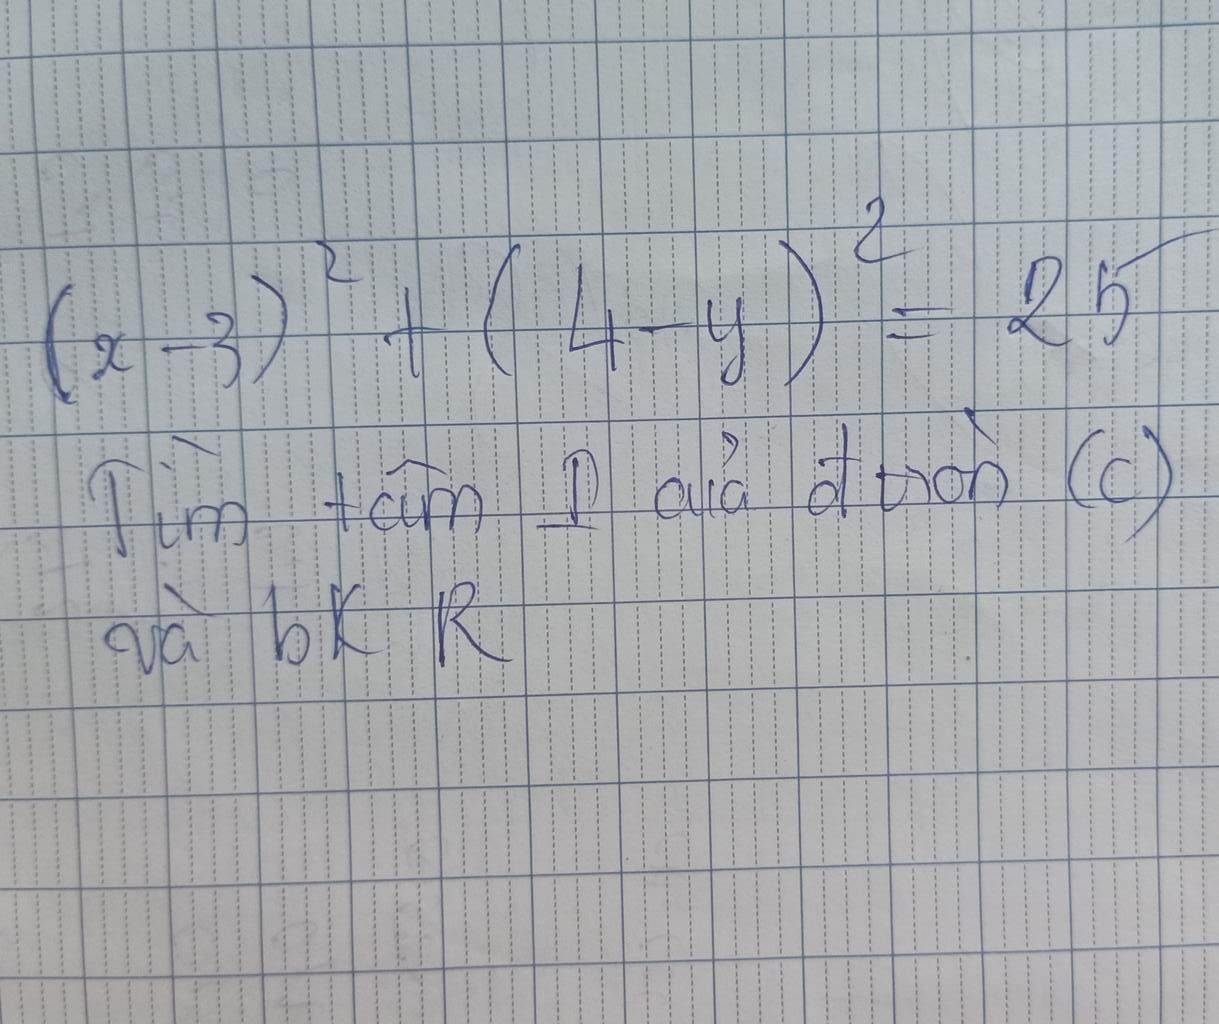 (x-3)² + (4-y)² = 25
Tìm tâm I của đ tròn (C)
và bK R